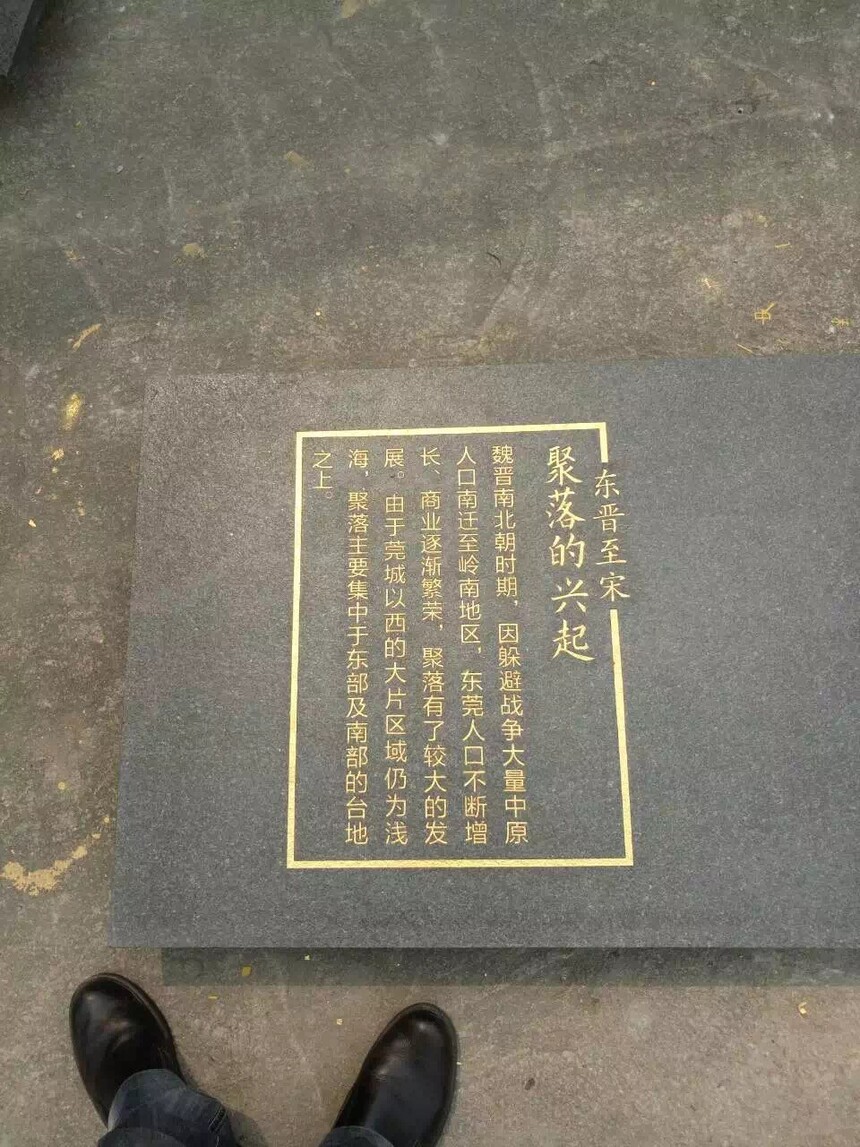 东晋至宋
聚落的兴起
魏晋南北朝时期，因躲避战争大量中原
人口南迁至岭南地区，东莞人口不断增
长、商业逐渐繁荣，聚落有了较大的发
展。由于莞城以西的大片区域仍为浅
海，聚落主要集中于东部及南部的台地
之上。
中